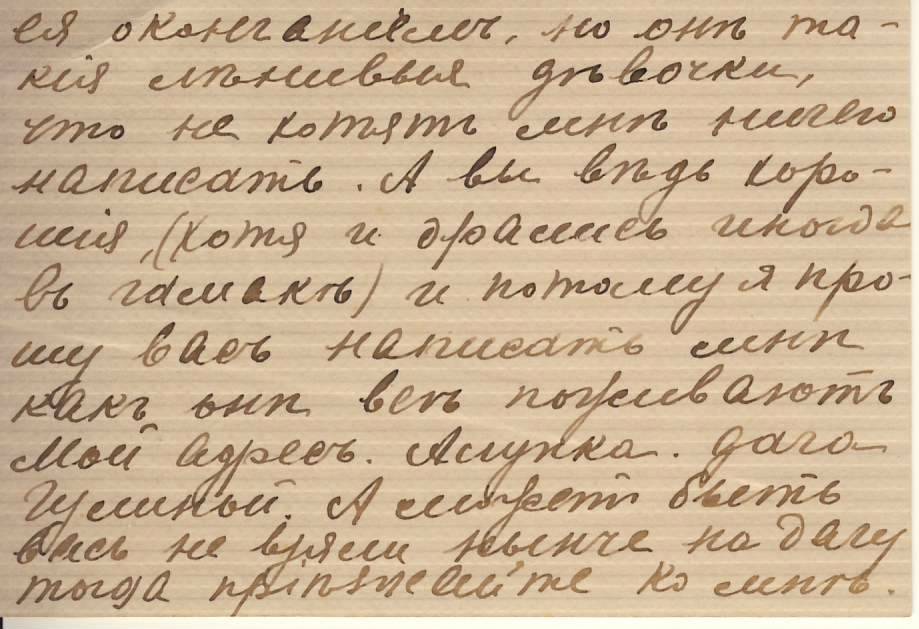 ея окончаніемъ, но онѣ та-
кія лѣнивыя дѣвочки,
что не хотятъ мнѣ ничего
написать. А вы вѣдь хоро-
шія, (хотя и дрались иногда
въ гамакѣ) и потому я про-
шу васъ написать мнѣ
какъ онѣ всѣ поживаютъ
Мой адресъ. Алупка. дача
А можетъ быть
васъ не взяли нынче на дачу
тогда пріѣзжайте ко мнѣ.